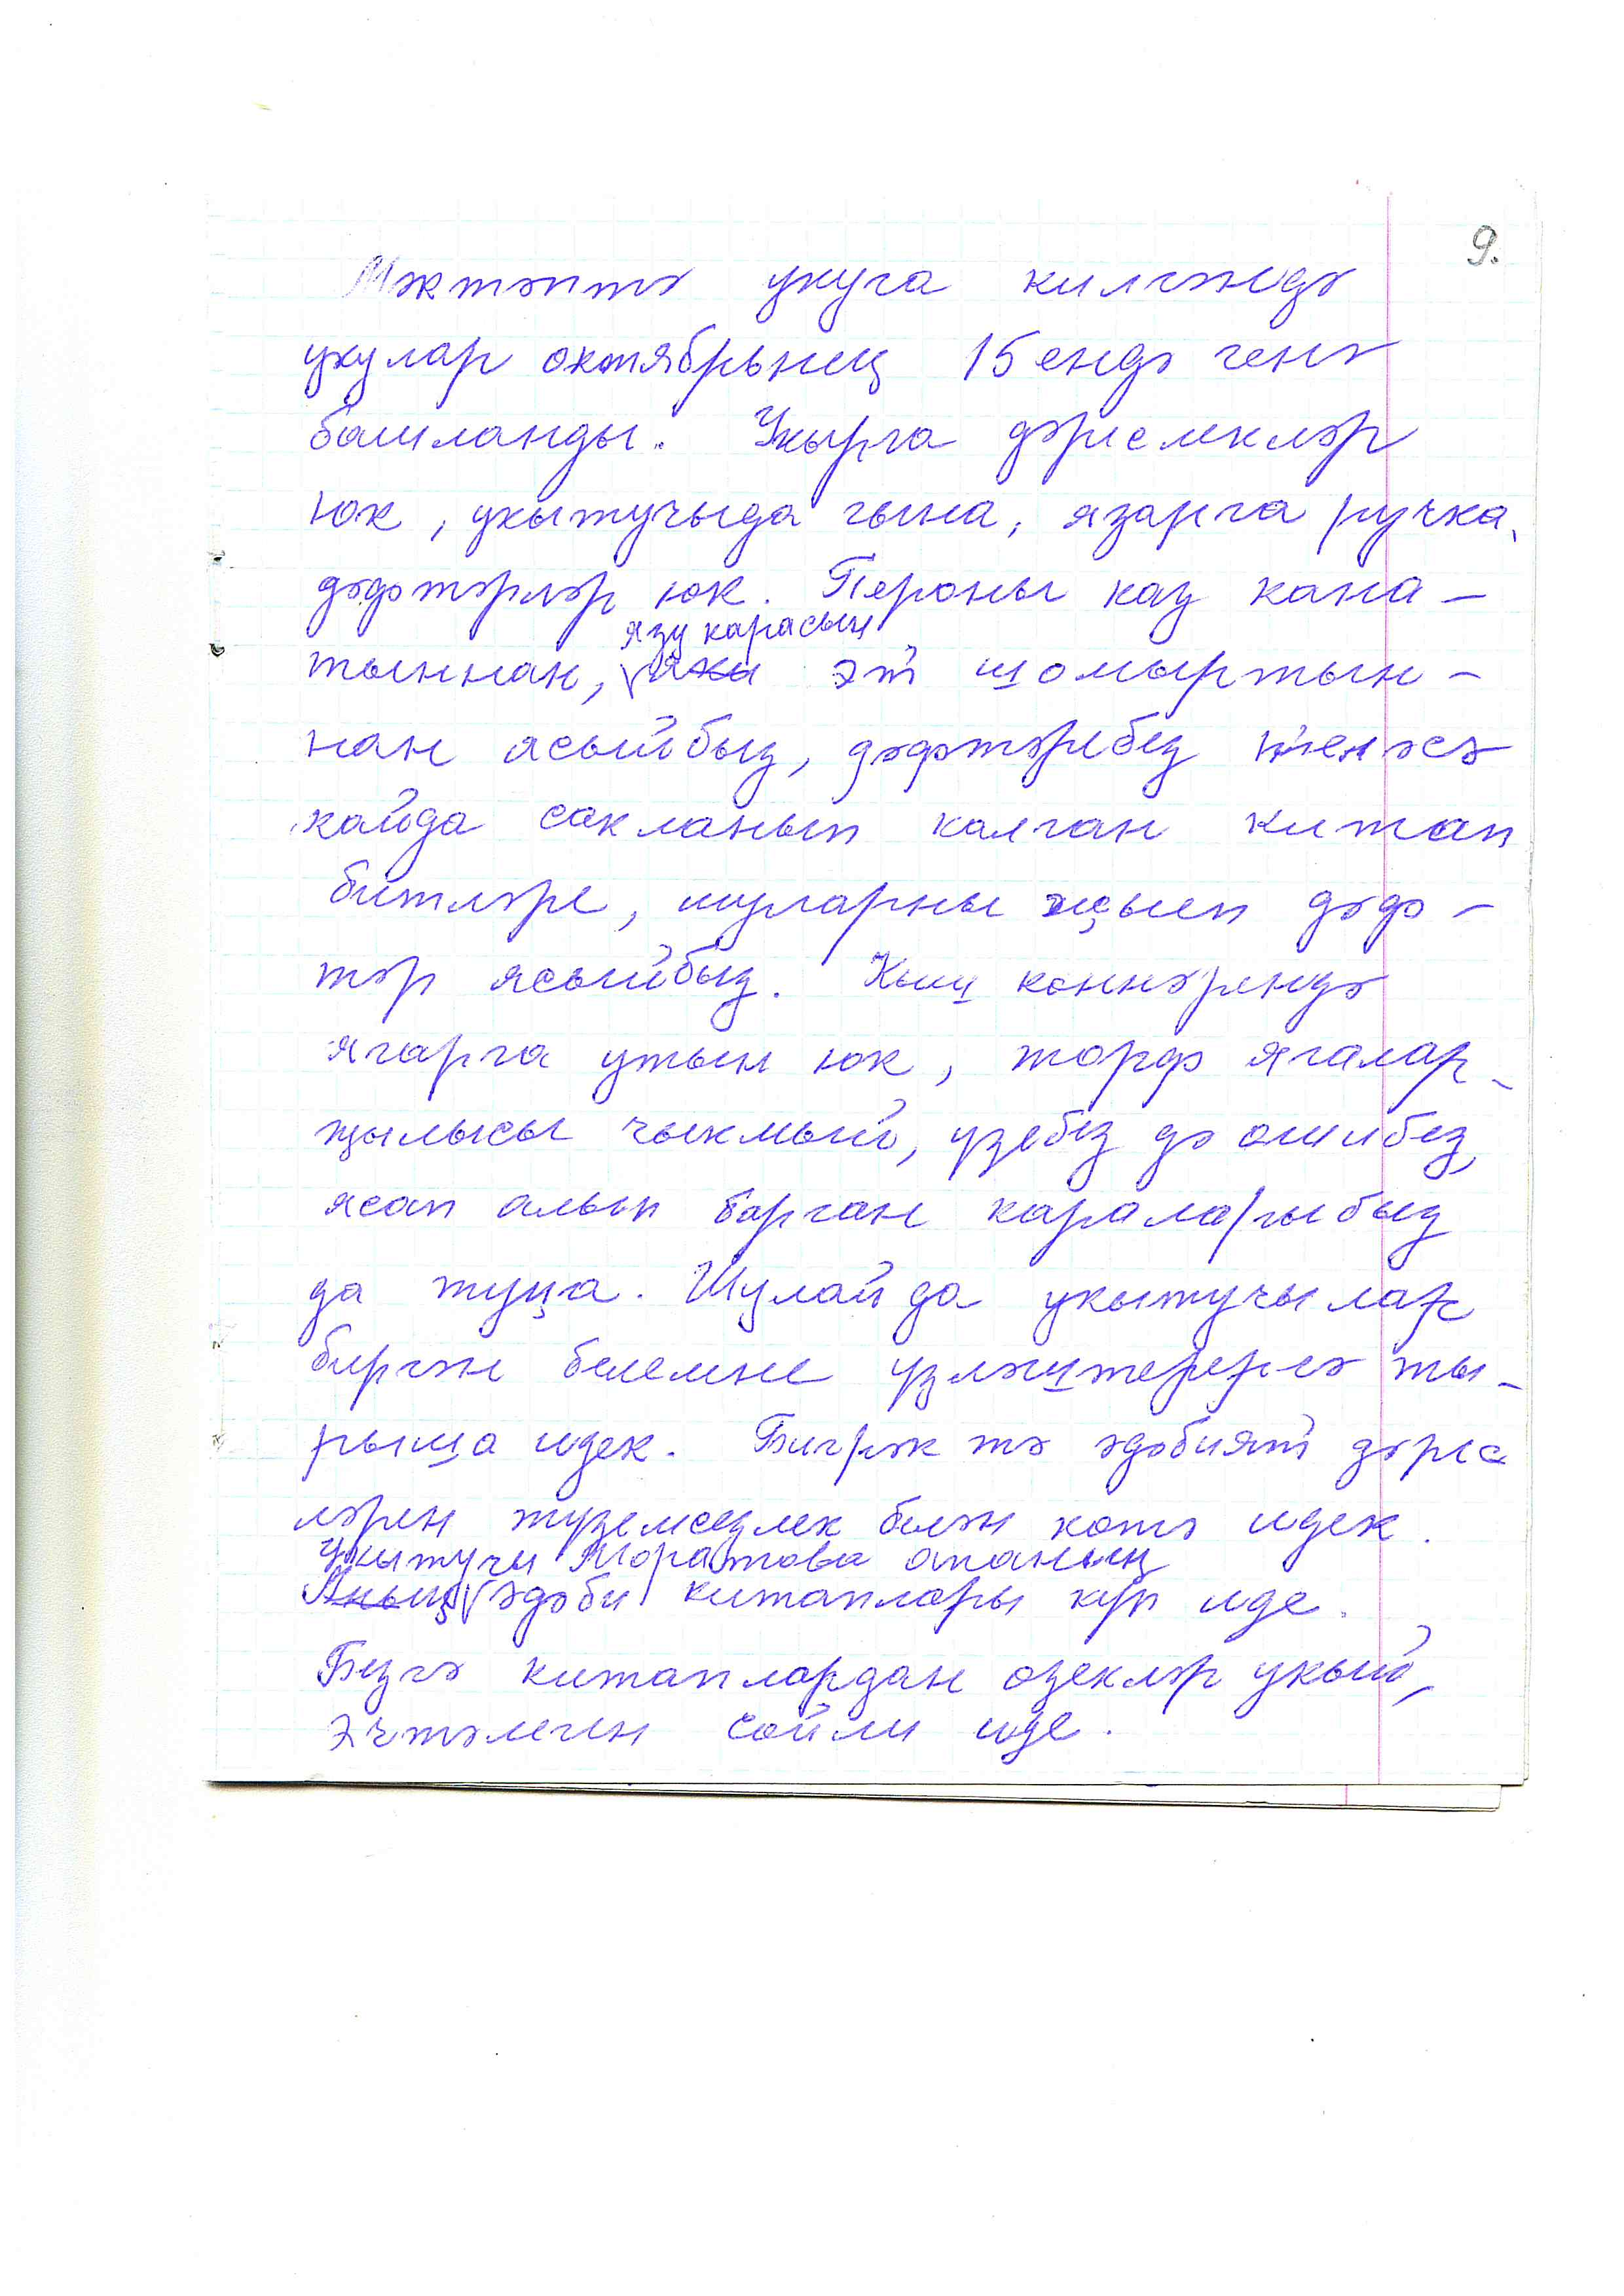 9.
Мәктәптә укуга килгәндә
укулар октябрьнең 15ендә генә
башланды. Укырга дәреслекләр
юк, укытучыда гына, язарга ручка,
дәфтәрләр юк. Пероны каз кана-
тыннан, язу карасын эт шомыртын-
нан ясыйбыз, дәфтәребез кемсә
кайда сакланып калган китап
битләре, шуларны җыеп дәф-
тәр ясыйбыз. Кыш көннәрендә
ягарга утын юк, торф ягалар
җылысы чыкмый, үзебез дә өшибез,
ясап алып барган караларыбыз
да туңа. Шулай да укытучылар
биргән белемне үзләштерергә ты-
рыша идек. Бигрәк тә әдәбият дәрес
ләрен түземсезлек белән көтә идек.
Укытучы Моратова апаның
Аның әдәби китаплары күп иде.
Безгә китаплардан өзекләр укый,
эчтәлеген сөйли иде.